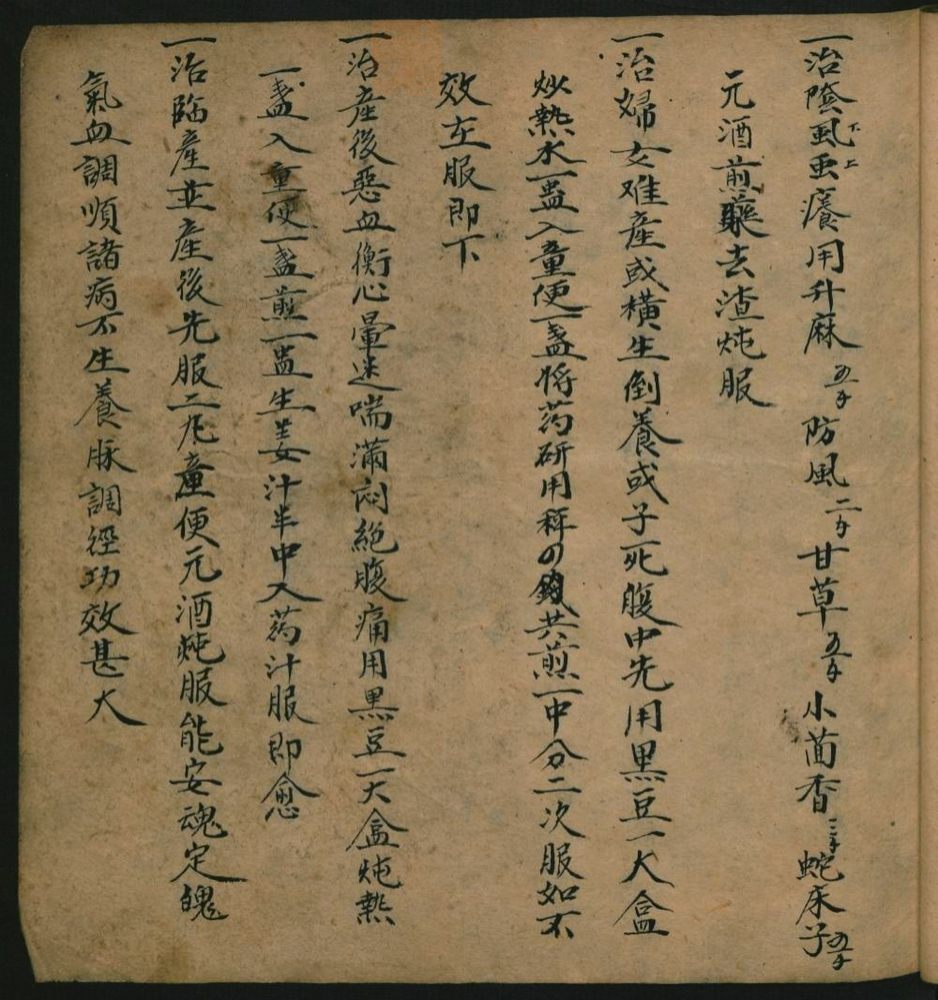 一治陰虱虫癢用升麻五分防風二分甘草五分小茴香三分蛇床子五分
元酒煎藥去渣炖服
一治婦女难產或横生倒養或子死腹中先用黒豆一大盒
炒熱水一盅入童便一盞将药研用秤の錢共煎一中分二次服如不
效左服即下
一治產後惡血衝心暈迷喘滿闷絕腹痛用黒豆一大盒炖熱
一盞入童便一盞煎一盅生姜汁半中入药汁服即愈
一治臨產並產後先服二丸童便元酒炖服能安魂定魄
氣血調順諸病不生養脉調經功效甚大